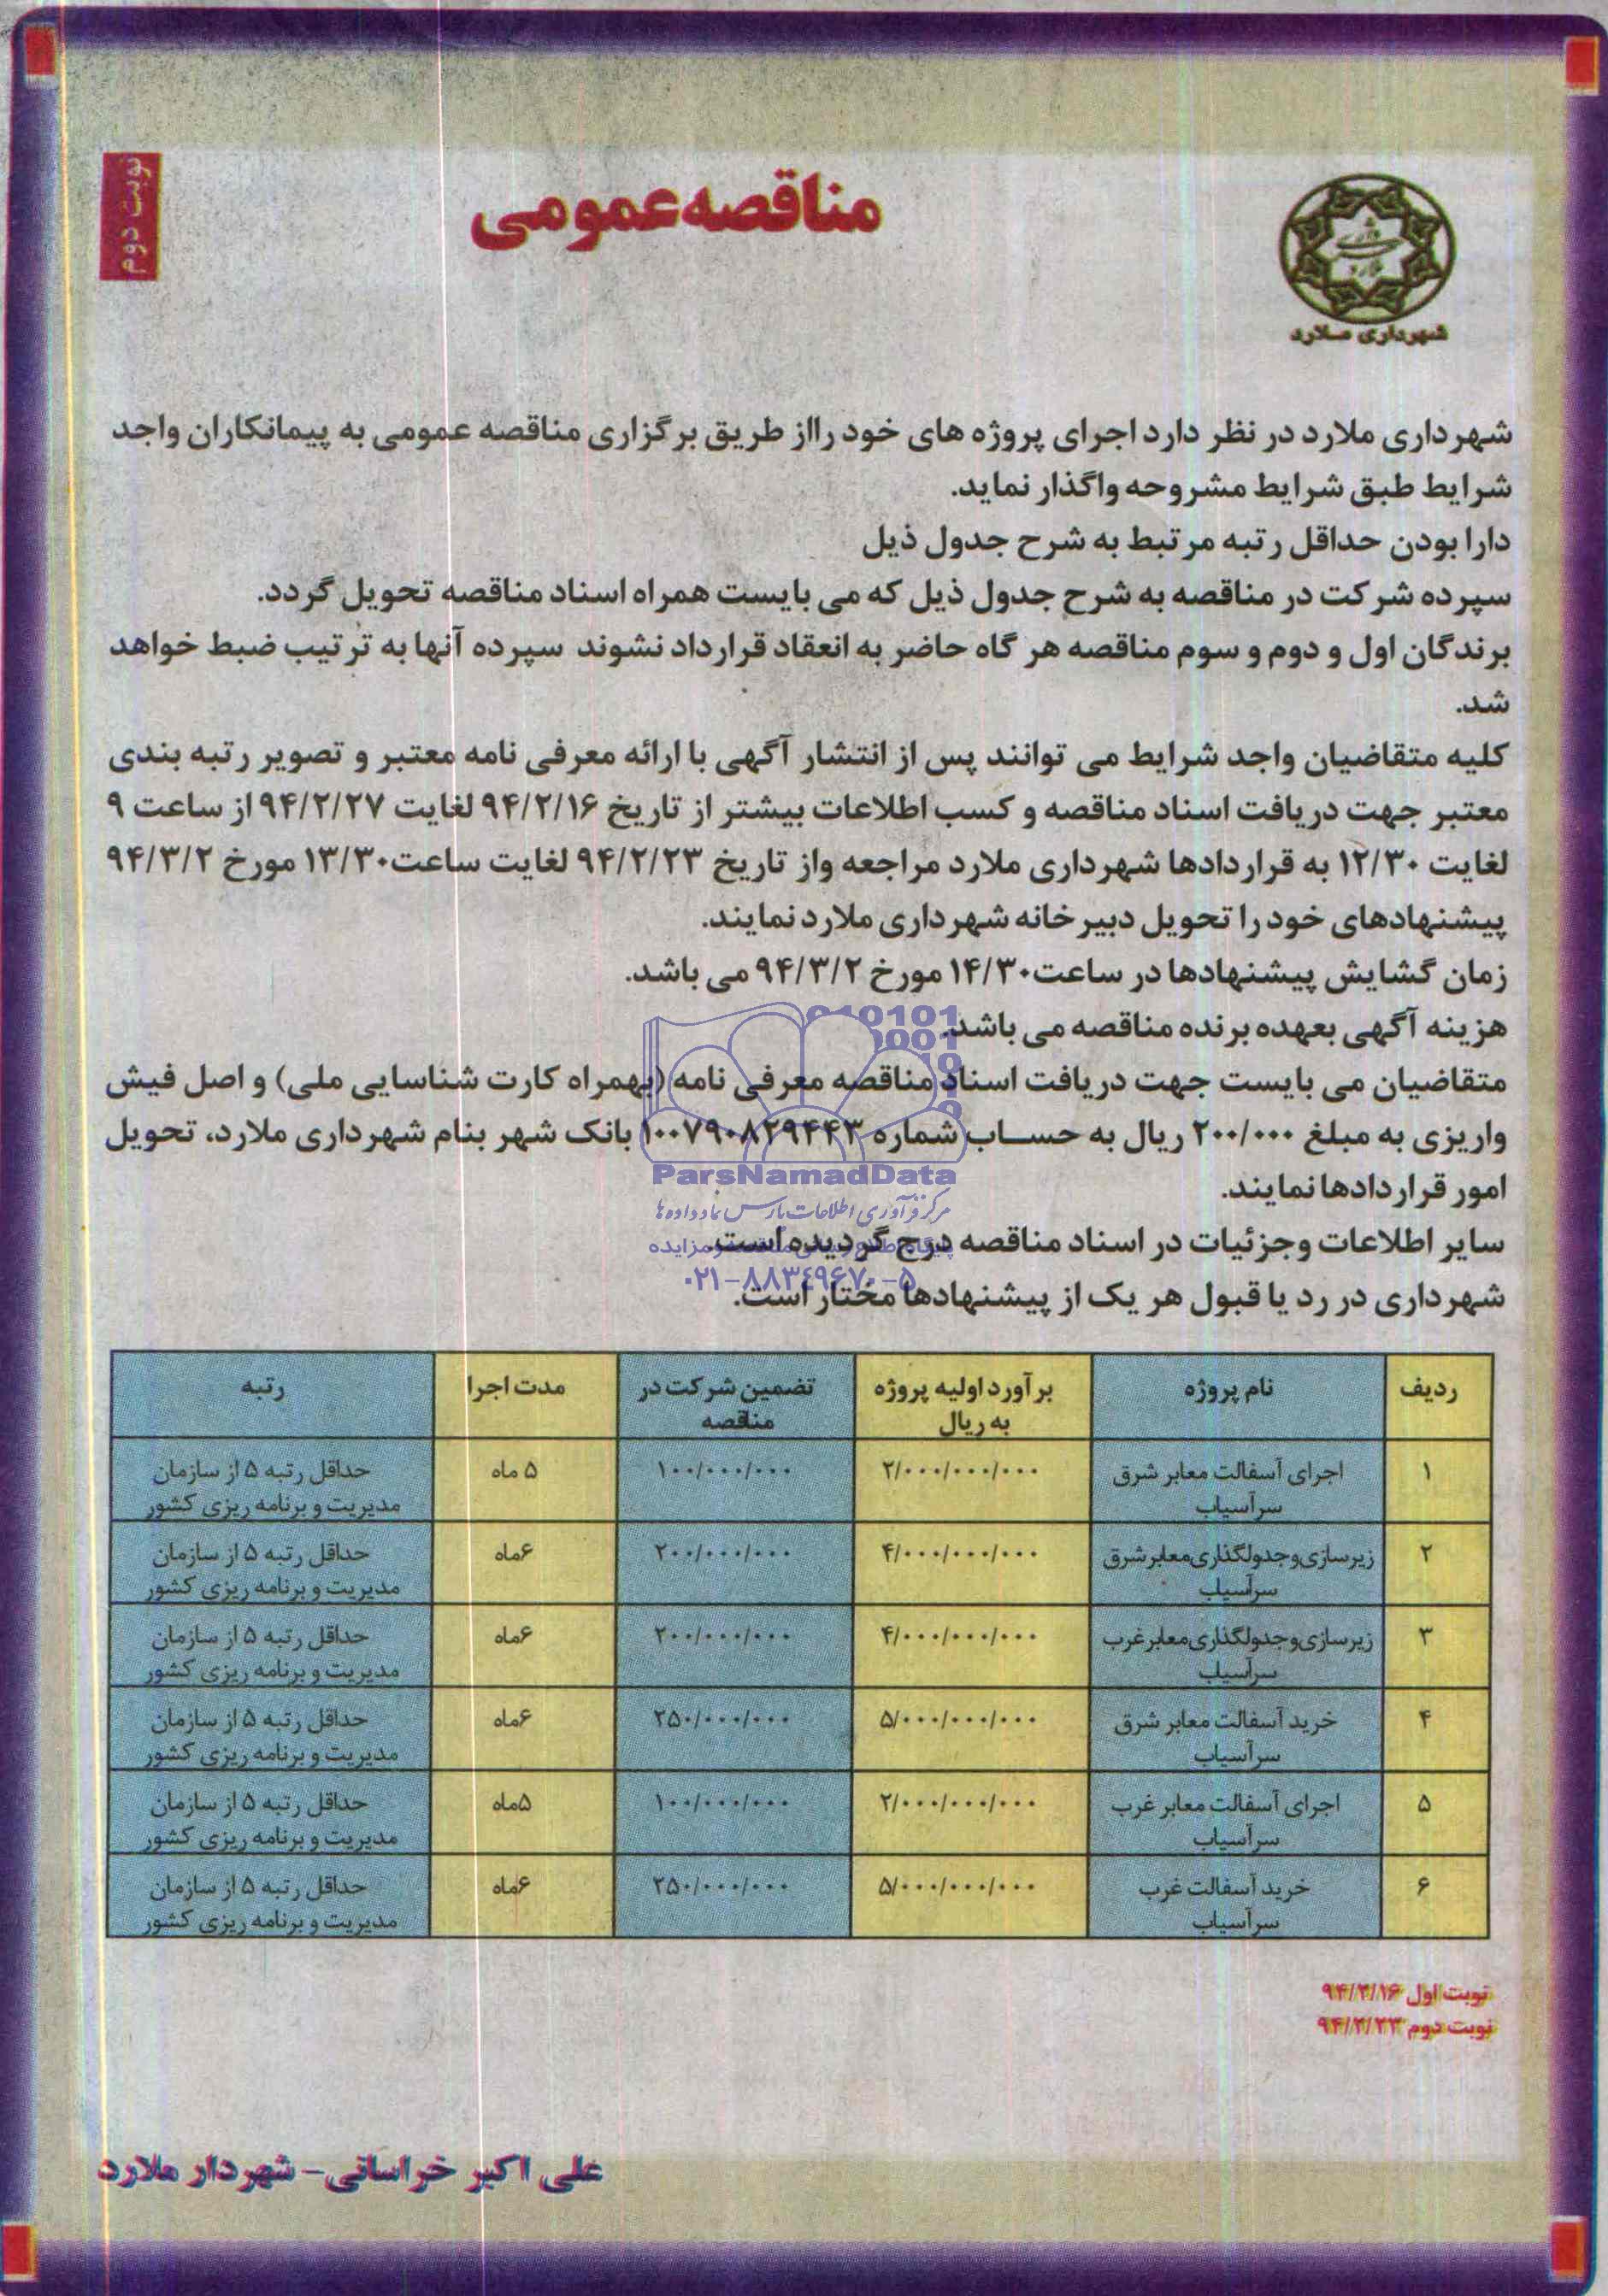 نوبت دوم
مناقصه عمومی
شهرداری ملارد
شهرداری ملارد در نظر دارد اجرای پروژه های خود رااز طریق برگزاری مناقصه عمومی به پیمانکاران واجد
شرایط طبق شرایط مشروحه واگذار نماید.
دارا بودن حداقل رتبه مرتبط به شرح جدول ذیل
سپرده شرکت در مناقصه به شرح جدول ذیل که می بایست همراه اسناد مناقصه تحویل گردد.
برندگان اول و دوم و سوم مناقصه هر گاه حاضر به انعقاد قرارداد نشوند سپرده آنها به ترتیب ضبط خواهد
شد.
کلیه متقاضیان واجد شرایط می توانند پس از انتشار آگهی با ارائه معرفی نامه معتبر و تصویر رتبه بندی
معتبر جهت دریافت اسناد مناقصه و کسب اطلاعات بیشتر از تاریخ ۹۴/۲/۱۶ لغایت ۹۴/۲/۲۷ از ساعت ۹
لغایت ۱۲/۳۰ به قراردادها شهرداری ملارد مراجعه واز تاریخ ۹۴/۲/۲۳ لغایت ساعت۱۳/۳۰ مورخ ۹۴/۳/۲
پیشنهادهای خود را تحویل دبیرخانه شهرداری ملارد نمایند.
زمان گشایش پیشنهادها در ساعت۱۴/۳۰ مورخ ۹۴/۳/۲ می باشد.
هزینه آگهی بعهده برنده مناقصه می باشد.
متقاضیان می بایست جهت دریافت اسناد مناقصه معرفی نامه (بهمراه کارت شناسایی ملی) و اصل فیش
واریزی به مبلغ ۲۰۰/۰۰۰ ریال به حساب شماره ۱۰۰۷۹۰۸۲۹۴۴۳ بانک شهر بنام شهرداری ملارد، تحویل
امور قراردادها نمایند.
سایر اطلاعات وجزئیات در اسناد مناقصه درج گردیده است.
شهرداری در رد یا قبول هر یک از پیشنهادها مختار است.
ParsNamadData
مرکز فرآوری اطلاعات پارس نماد داده ها
۰۲۱-۸۸۳٤۹۶۷۰-۵
ردیف نام پروژه برآورد اولیه پروژه تضمین شرکت در مدت اجرا رتبه
به ریال مناقصه
۱ اجرای آسفالت معابر شرق ۲/۰۰۰/۰۰۰/۰۰۰ ۱۰۰/۰۰۰/۰۰۰ ۵ ماه حداقل رتبه ۵ از سازمان
سرآسیاب مدیریت و برنامه ریزی کشور
۲ زیرسازی وجدولگذاری معابر شرق ۴/۰۰۰/۰۰۰/۰۰۰ ۲۰۰/۰۰۰/۰۰۰ ۶ماه حداقل رتبه ۵ از سازمان
سرآسیاب مدیریت و برنامه ریزی کشور
۳ زیرسازی وجدولگذاری معابر غرب ۴/۰۰۰/۰۰۰/۰۰۰ ۲۰۰/۰۰۰/۰۰۰ ۶ماه حداقل رتبه ۵ از سازمان
سرآسیاب مدیریت و برنامه ریزی کشور
۴ خرید آسفالت معابر شرق ۵/۰۰۰/۰۰۰/۰۰۰ ۲۵۰/۰۰۰/۰۰۰ ۶ماه حداقل رتبه ۵ از سازمان
سرآسیاب مدیریت و برنامه ریزی کشور
۵ اجرای آسفالت معابر غرب ۲/۰۰۰/۰۰۰/۰۰۰ ۱۰۰/۰۰۰/۰۰۰ ۵ماه حداقل رتبه ۵ از سازمان
سرآسیاب مدیریت و برنامه ریزی کشور
۶ خرید آسفالت غرب ۵/۰۰۰/۰۰۰/۰۰۰ ۲۵۰/۰۰۰/۰۰۰ ۶ماه حداقل رتبه ۵ از سازمان
سرآسیاب مدیریت و برنامه ریزی کشور
نوبت اول ۹۴/۲/۱۶
نوبت دوم ۹۴/۲/۲۳
علی اکبر خراسانی - شهردار ملارد